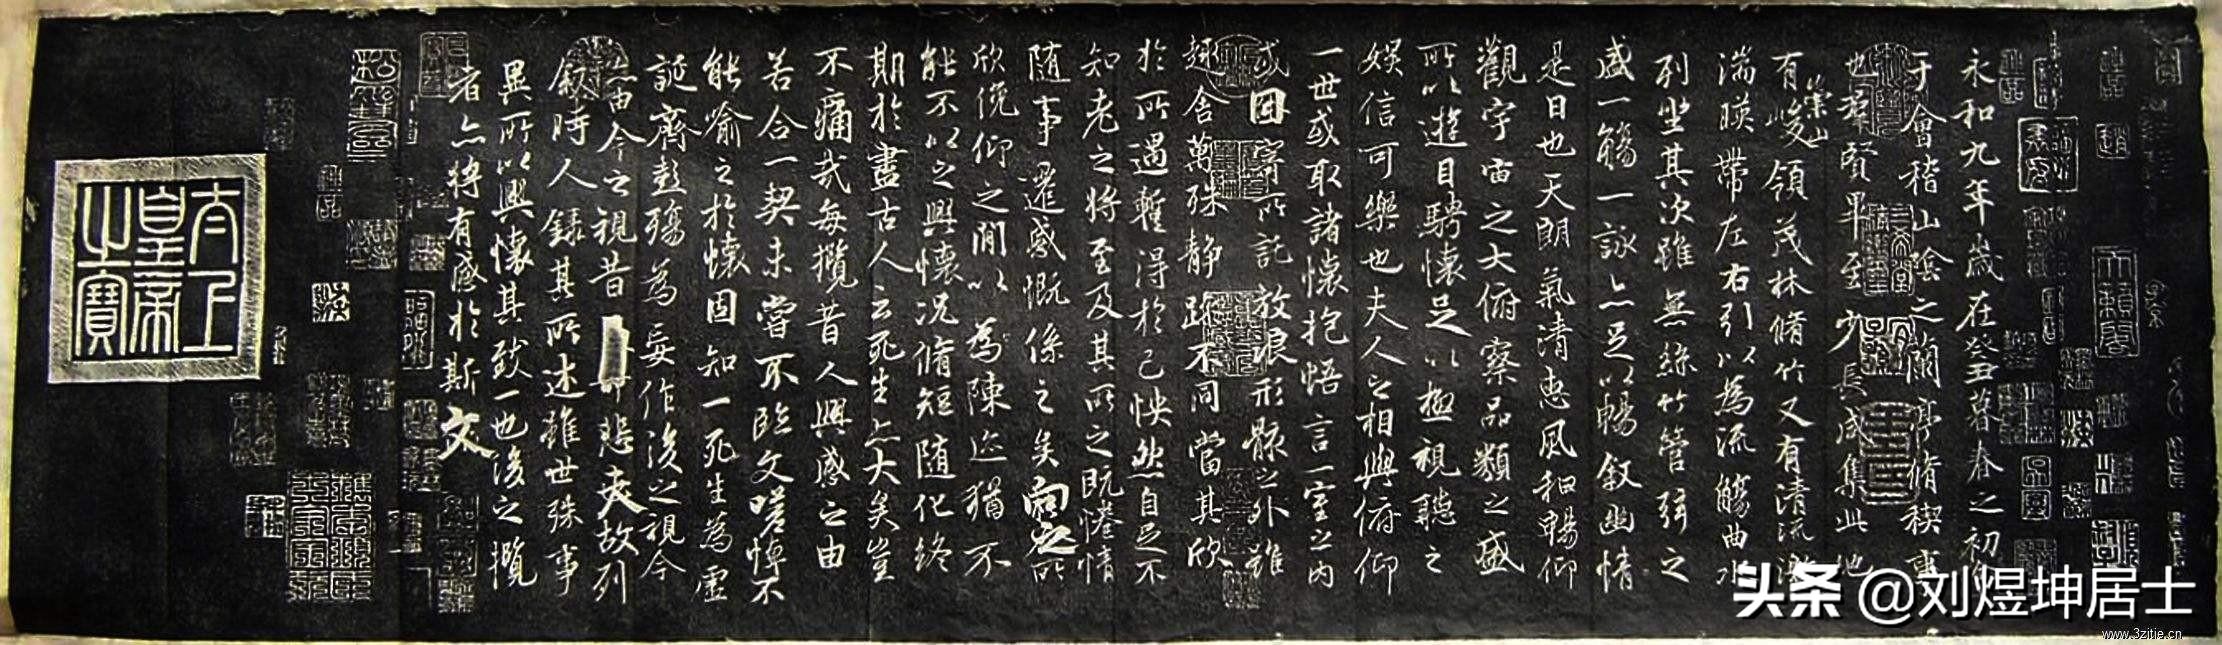 永和九年歲在癸丑暮春之初會
于會稽山陰之蘭亭脩稧事
也羣賢畢至少長咸集此地
有崇山峻領茂林脩竹又有清流激
湍暎帶左右引以為流觴曲水
列坐其次雖無絲竹管弦之
盛一觴一詠亦足以暢敘幽情
是日也天朗氣清惠風和暢仰
觀宇宙之大俯察品類之盛
所以遊目騁懷足以極視聽之
娛信可樂也夫人之相與俯仰
一世或取諸懷抱悟言一室之內
或因寄所託放浪形骸之外雖
趣舍萬殊靜躁不同當其欣
於所遇暫得於己怏然自足不
知老之將至及其所之既惓情
隨事遷感慨係之矣向之所
欣俛仰之閒以為陳迹猶不
能不以之興懷況脩短隨化終
期於盡古人云死生亦大矣豈
不痛哉每攬昔人興感之由
若合一契未嘗不臨文嗟悼不
能喻之於懷固知一死生為虛
誕齊彭殤為妄作後之視今
亦由今之視昔悲夫故列
敘時人錄其所述雖世殊事
異所以興懷其致一也後之攬
者亦將有感於斯文
太上皇帝之寶
头条 @刘煜坤居士
www.3zitie.cn